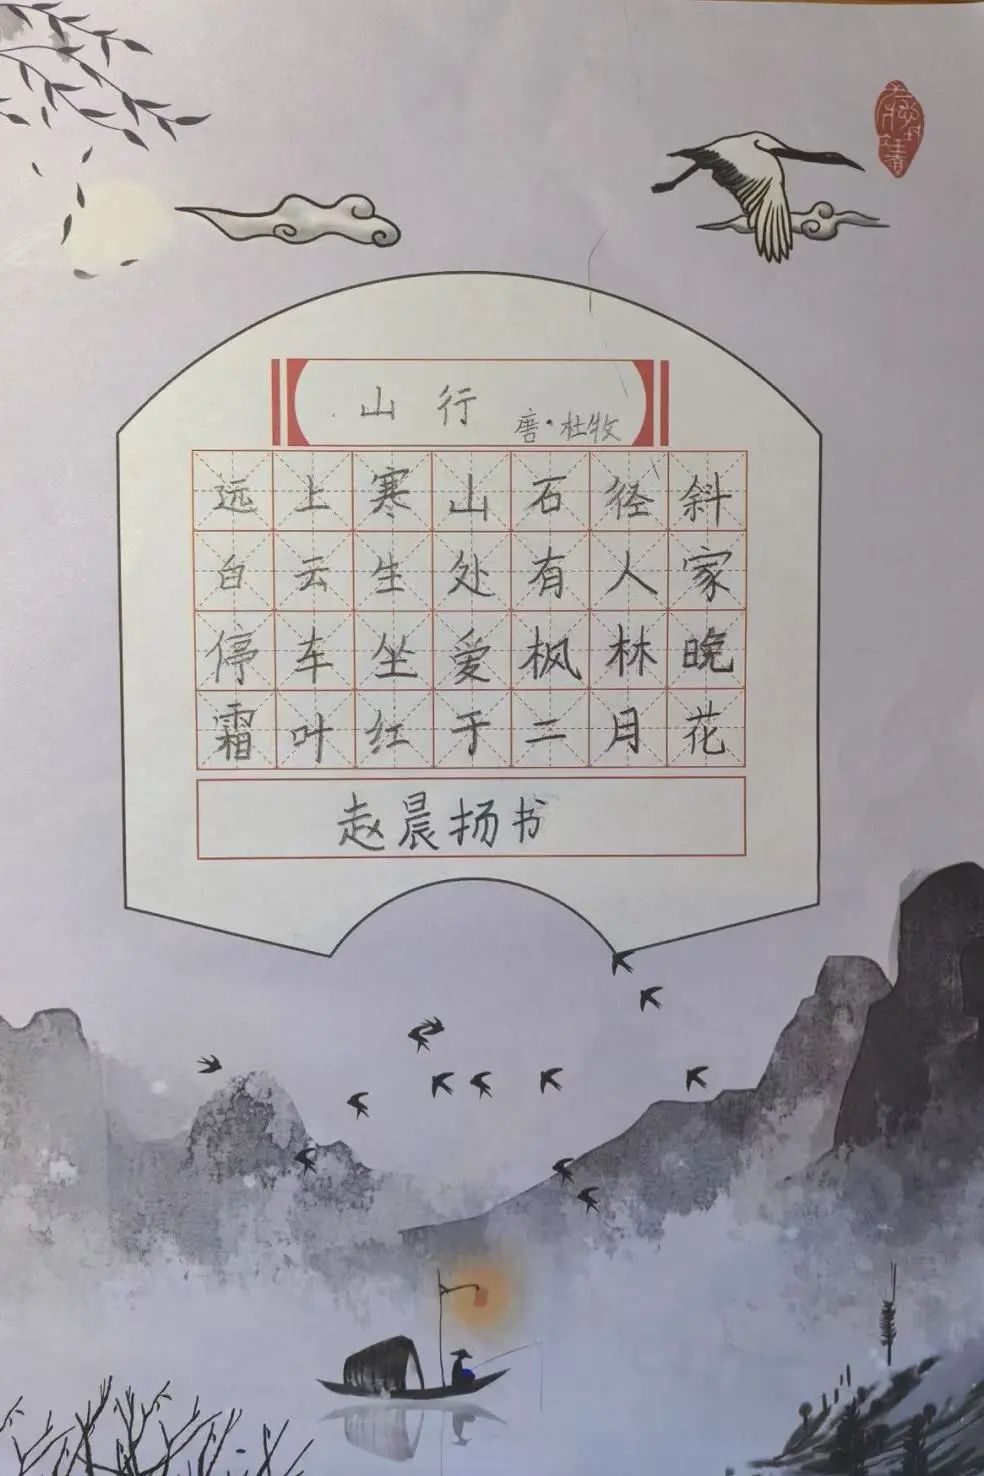 山行
唐·杜牧
远上寒山石径斜
白云生处有人家
停车坐爱枫林晚
霜叶红于二月花
赵晨扬书